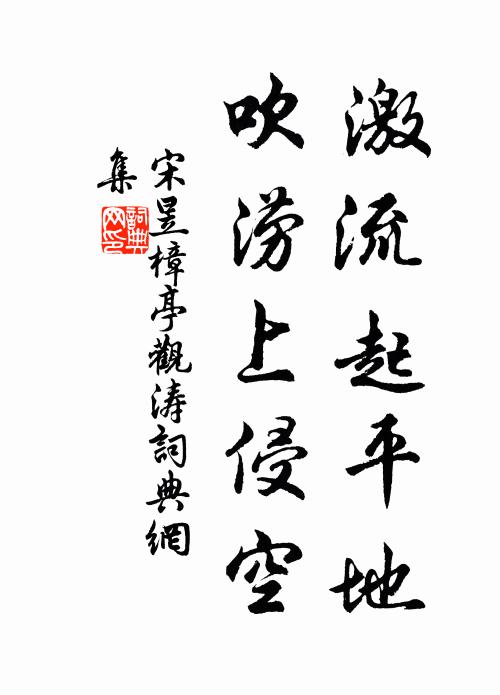 激流起平地
吹涝上侵空
宋昱樟亭觀涛詞典網
集
詞典网印